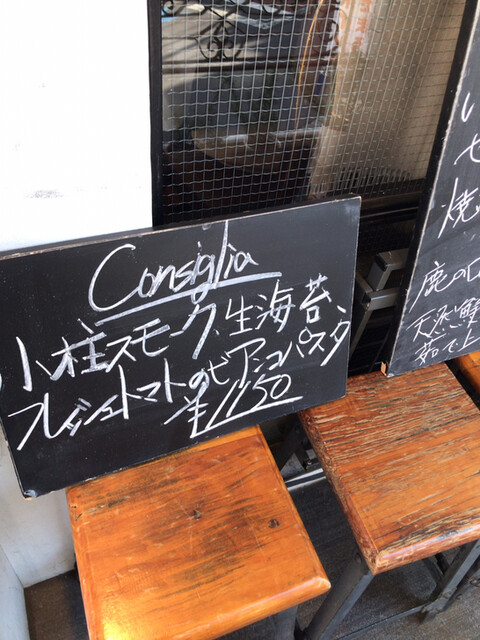 Consiglia
小柱スモーク、生海苔、
フレッシュトマトのビアンコパスタ
¥1150
い
せ
焼
鹿の
天然鮮